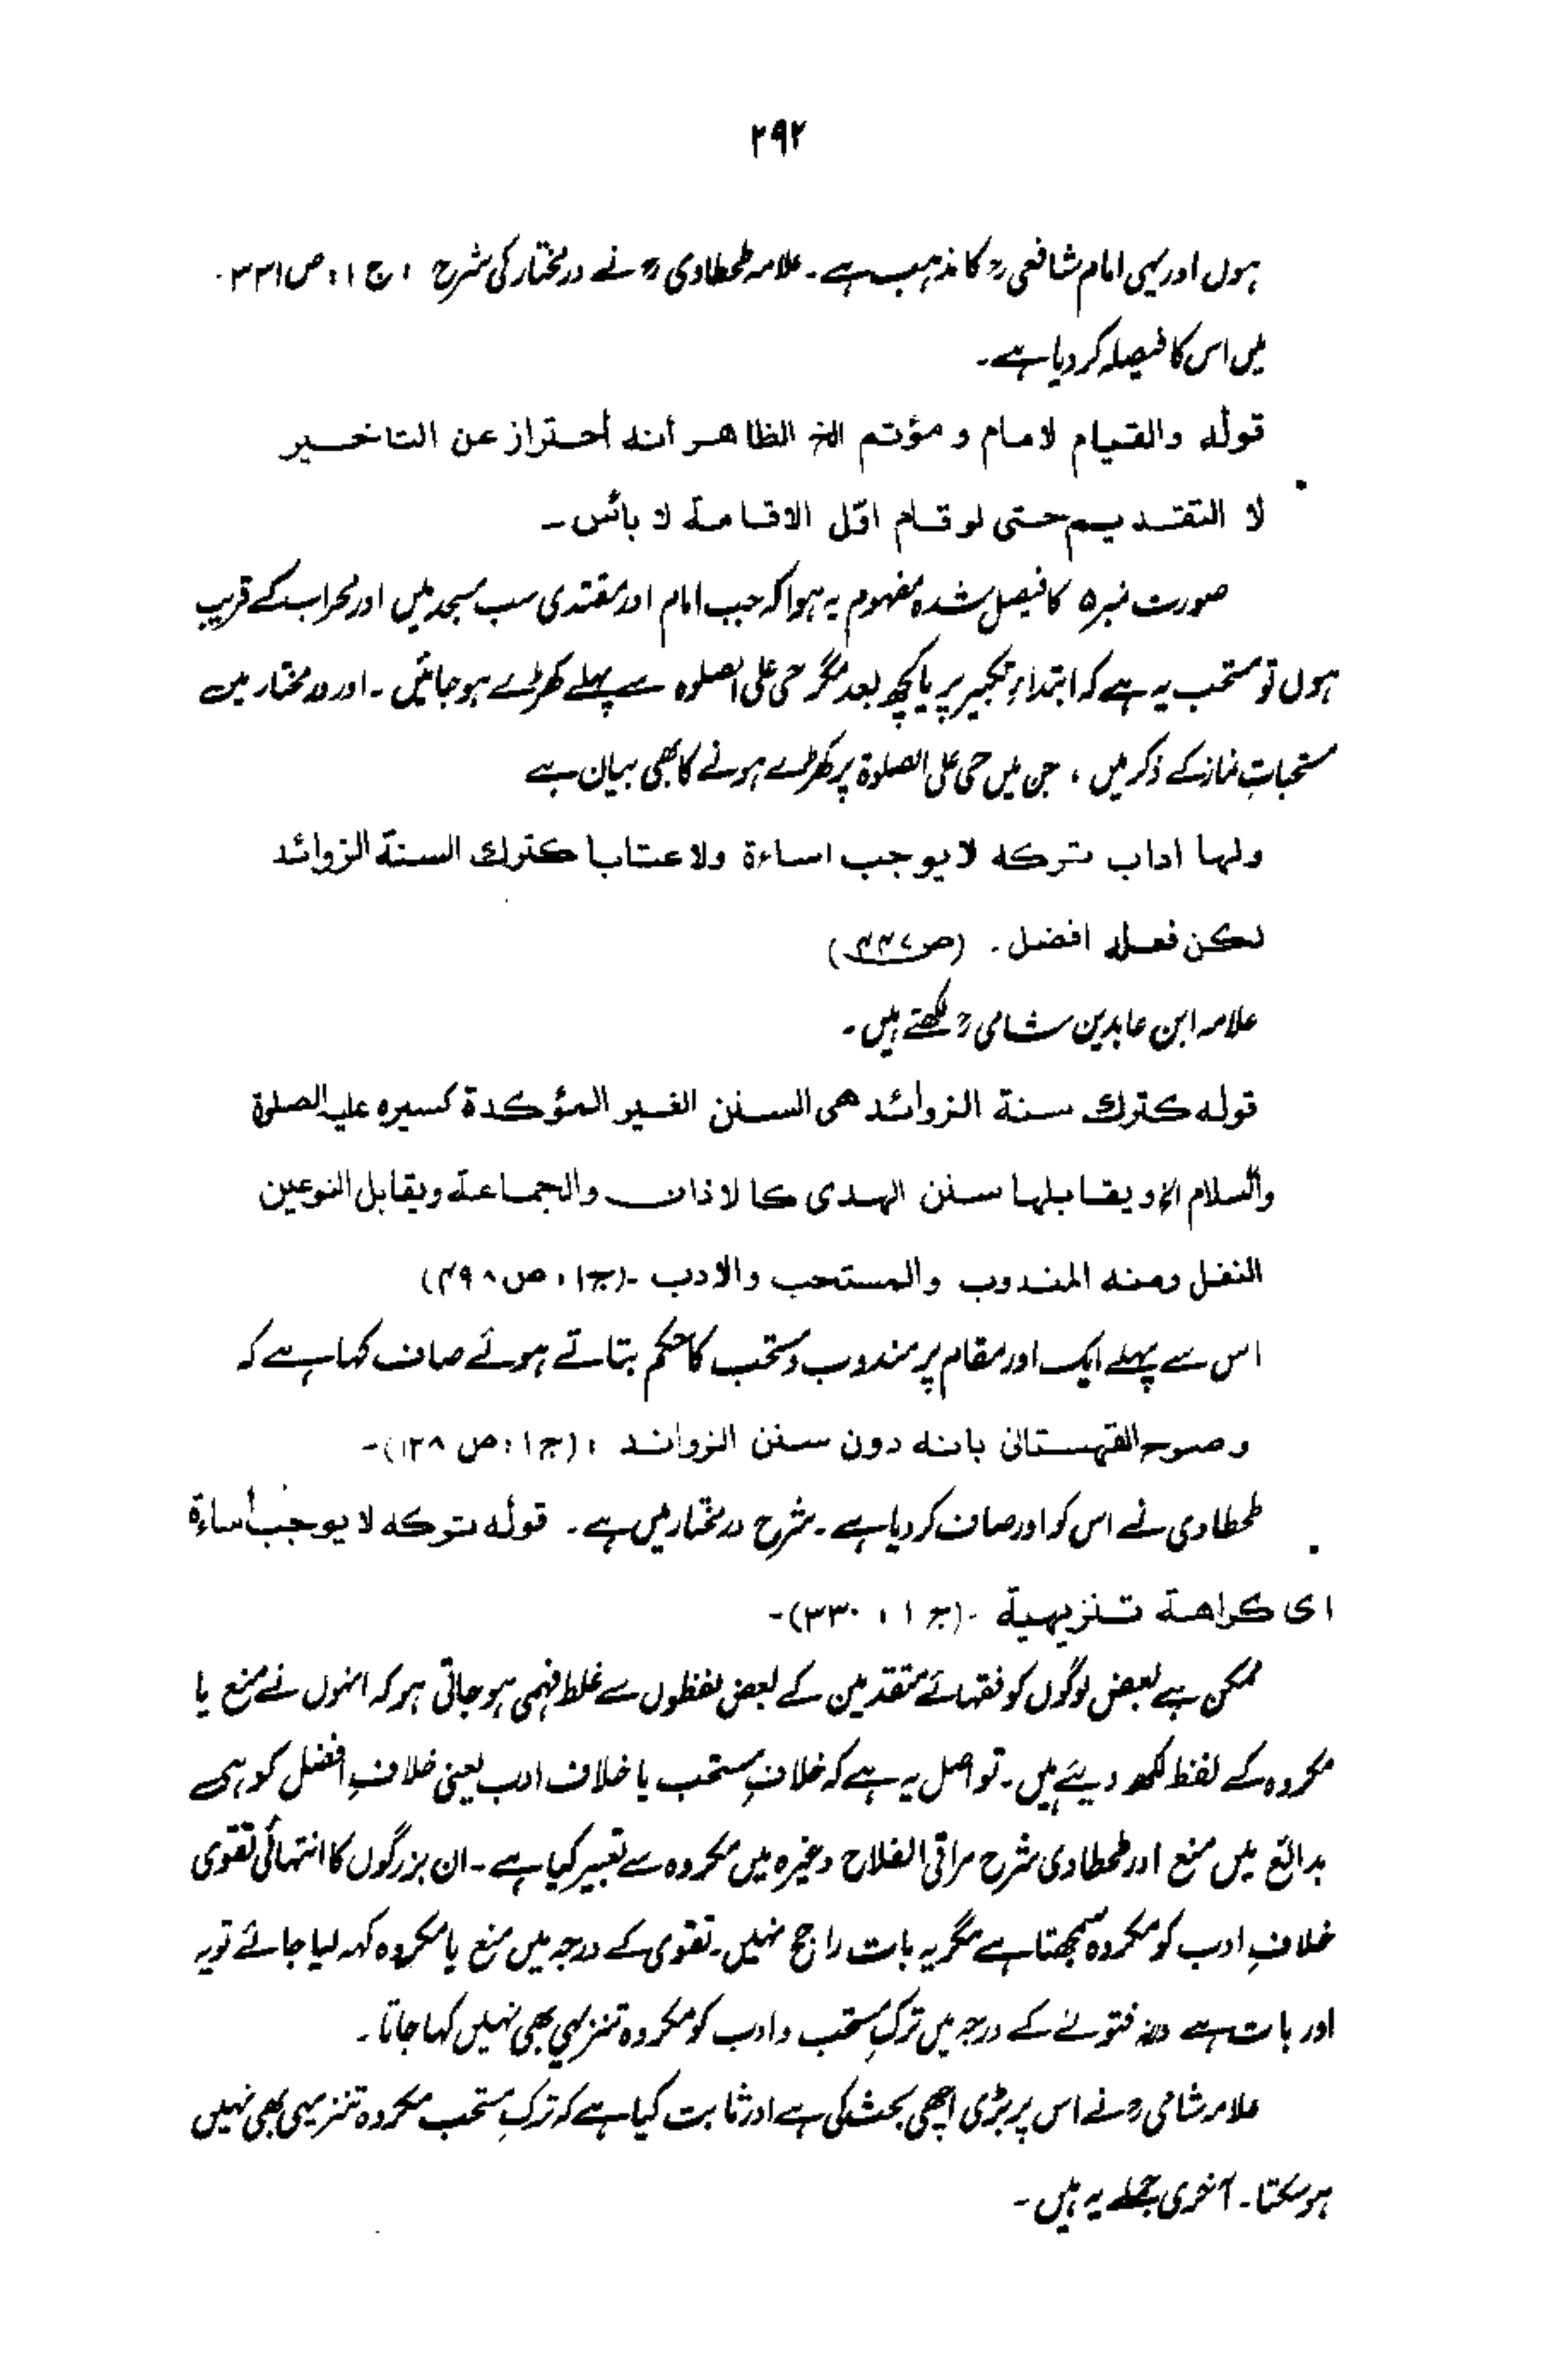 ۲۹۲
ہوں اور یہی امام شافعیؒ کا مذہب ہے۔ علامہ طحطاویؒ نے درمختار کی شرح ، ج ۱ : ص ۳۳۱۔
میں اس کا فیصلہ کر دیا ہے۔
قوله والقیام لامام و مؤتم الخ الظاهر أنه أحتراز عن التاخیر
لا التقدیم حتی لو قام اوّل الاقامة لا بائس۔
صورت نمبر ۵ کا فیصل شدہ مفہوم یہ ہوا کہ جب امام اور مقتدی سب مسجد میں اور محراب کے قریب
ہوں تو مستحب یہ ہے کہ ابتداءِ تکبیر پر یا کچھ بعد مگر حی علی الصلوہ سے پہلے کھڑے ہو جائیں۔ اور در مختار میں
مستحباتِ نماز کے ذکر میں ، جن میں حی علی الصلوۃ پر کھڑے ہونے کا بھی بیان ہے
ولها اداب ترکه لا یوجب اساءة ولا عتابا کترك السنة الزوائد
لکن فعله افضل۔ (ص ۴۴۷)
علامہ ابن عابدین شامیؒ لکھتے ہیں۔
قوله کترك سنة الزوائد هی السنن الغیر المؤکدة کسیره علیه الصلوٰة
والسلام الخ ویقابلها سنن الهدی کالاذان والجماعة ویقابل النوعین
النفل ومنه المندوب والمستحب والادب۔ (ج ۱ ، ص ۴۹۸)
اس سے پہلے ایک اور مقام پر مندوب و مستحب کا حکم بتاتے ہوئے صاف کہا ہے کہ
وصرح القهستانی بانه دون سنن الزوائد ، (ج ۱ : ص ۱۲۸)۔
طحطاوی نے اس کو اور صاف کر دیا ہے۔ شرح در مختار میں ہے۔ قوله ترکه لا یوجب أساءة
ای کراهة تنزیهیة ۔ (ج ۱ ، ۳۳۰)۔
ممکن ہے بعض لوگوں کو فقہائے متقدمین کے بعض لفظوں سے غلط فہمی ہو جاتی ہو کہ انہوں نے منع یا
مکروہ کے لفظ لکھ دیئے ہیں۔ تو اصل یہ ہے کہ خلافِ مستحب یا خلاف ادب یعنی خلافِ افضل کو ہی
بدائع میں منع اور طحطاوی شرح مراقی الفلاح وغیرہ میں مکروہ سے تعبیر کیا ہے۔ ان بزرگوں کا انتہائی تقوی
خلافِ ادب کو مکروہ سمجھتا ہے مگر یہ بات راجح نہیں۔ تقوی کے درجہ میں منع یا مکروہ کہہ لیا جائے تو یہ
اور بات ہے ورنہ فتوے کے درجہ میں ترکِ مستحب و ادب کو مکروہ تنزیہی بھی نہیں کہا جاتا۔
علامہ شامیؒ نے اس پر بڑی اچھی بحث کی ہے اور ثابت کیا ہے کہ ترکِ مستحب مکروہ تنزیہی بھی نہیں
ہو سکتا۔ آخری جملے یہ ہیں۔